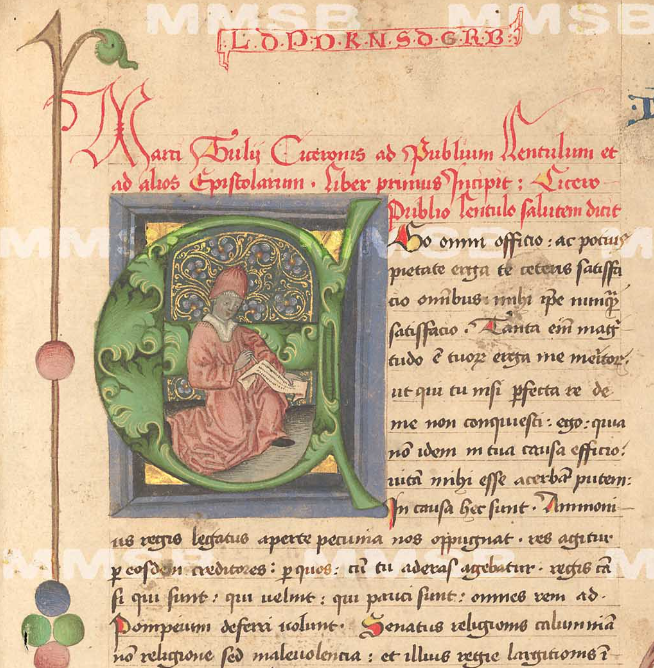 L·D·P·D·K·N·S·D·G·R·B·
Marci Tulij Ciceronis ad Publium Lentulum et
ad alios Epistolarum · liber primus Incipit : Cicero
Publio lentulo salutem dicit
Ego omni officio : ac pocius
pietate erga te ceteris satisfa
cio omnibus : mihi ip̄e nunq̄
satisfacio · Tanta em̄ mag
tudo ē tuoꝝ erga me meritoꝝ
ut qui tu nisi ꝑfecta re de
me non conquiesti : ego : quia
nō idem in tua causa efficio :
uitā mihi esse acerbā putem :
In causa hec sunt · Ammoni
us regis legatus aperte pecunia nos oppugnat · res agitur
ꝑ eosdem creditores : ꝑ quos : cū tu aderas agebatur · regis cā
si qui sunt : qui uelint : qui pauci sunt : omnes rem ad ·
Pompeium deferri uolunt · Senatus religionis calumniā
nō religione sed maleuolencia : et illius regie largitionis ī
MMSB MMSB